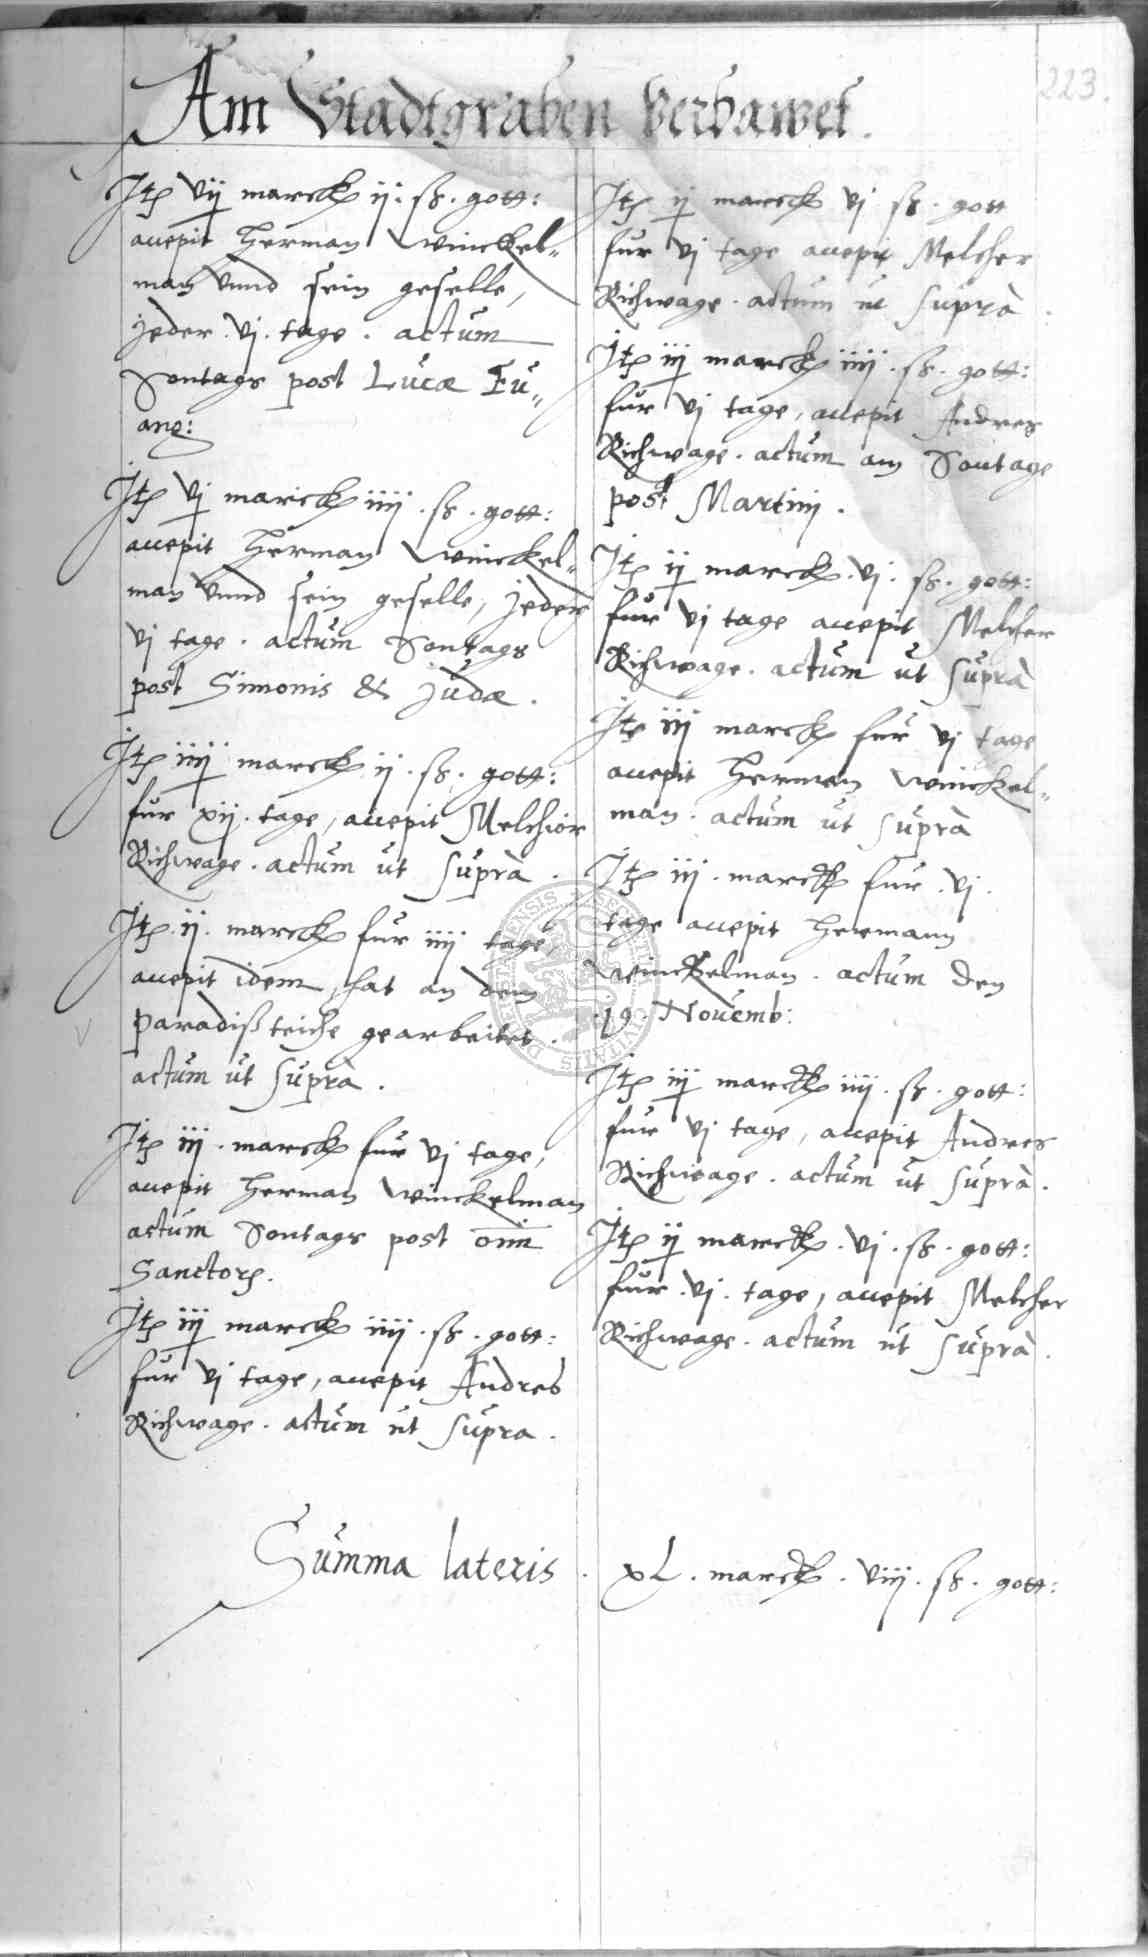 223.
Am Stadtgraben verbawet.
Itē vij marckē ij. ß. gott:
accepit Herman Winckel=
man vnnd sein geselle,
jeder. vj. tage. actum
Sontags post Lucæ Eu=
ang:
Itē vj marckē iiij. ß. gott:
accepit Herman Winckel=
man vnnd sein geselle, jeder
vj tage. actum Sontags
post Simonis & Judæ.
Itē iiij marckē ij. ß. gott:
fur xij. tage, accepit Melchior
Richwage. actum ut suprà.
Itē. ij. marckē fur iiij tage,
accepit idem, hat an dem
paradiß teiche gearbeitet.
actum ut suprà.
Itē iij. marckē fur vj tage,
accepit Herman Winckelman
actum Sontags post oīm
Sanctorꝭ.
Itē iij marckē iiij. ß. gott:
fur vj tage, accepit Andres
Richwage. actum ut supra.
Itē ij marckē vj ß. gott
fur vj tage accepit Melcher
Richwage. actum ut suprà.
Itē iij marckē iiij. ß. gott:
fur vj tage, accepit Andres
Richwage. actum am Sontage
post Martinj.
Itē ij marckē. vj. ß. gott:
fur vj tage accepit Melcher
Richwage. actum ut suprà
Itē iij marckē fur vj tage
accepit Herman Winckel=
man. actum ut suprà
Itē iij. marckē fur. vj.
tage accepit Hermann
Winckelman. actum den
.19. Novemb:
Itē iij marckē iiij. ß. gott:
fur vj tage, accepit Andres
Richwage. actum ut suprà.
Itē ij marckē. vj. ß. gott:
fur. vj. tage, accepit Melcher
Richwage. actum ut suprà.
Summa lateris. xL. marckē. viij. ß. gott: